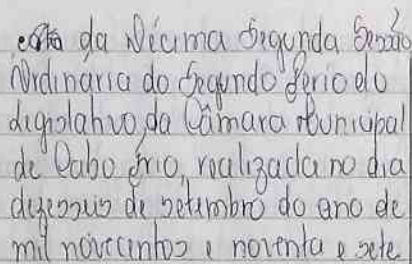 esta da Décima Segunda Sessão
Ordinaria do Segundo Periodo
Legislativo, da Câmara Municipal
de Cabo Frio, realizada no dia
dezesseis de setembro do ano de
mil novecentos e noventa e sete